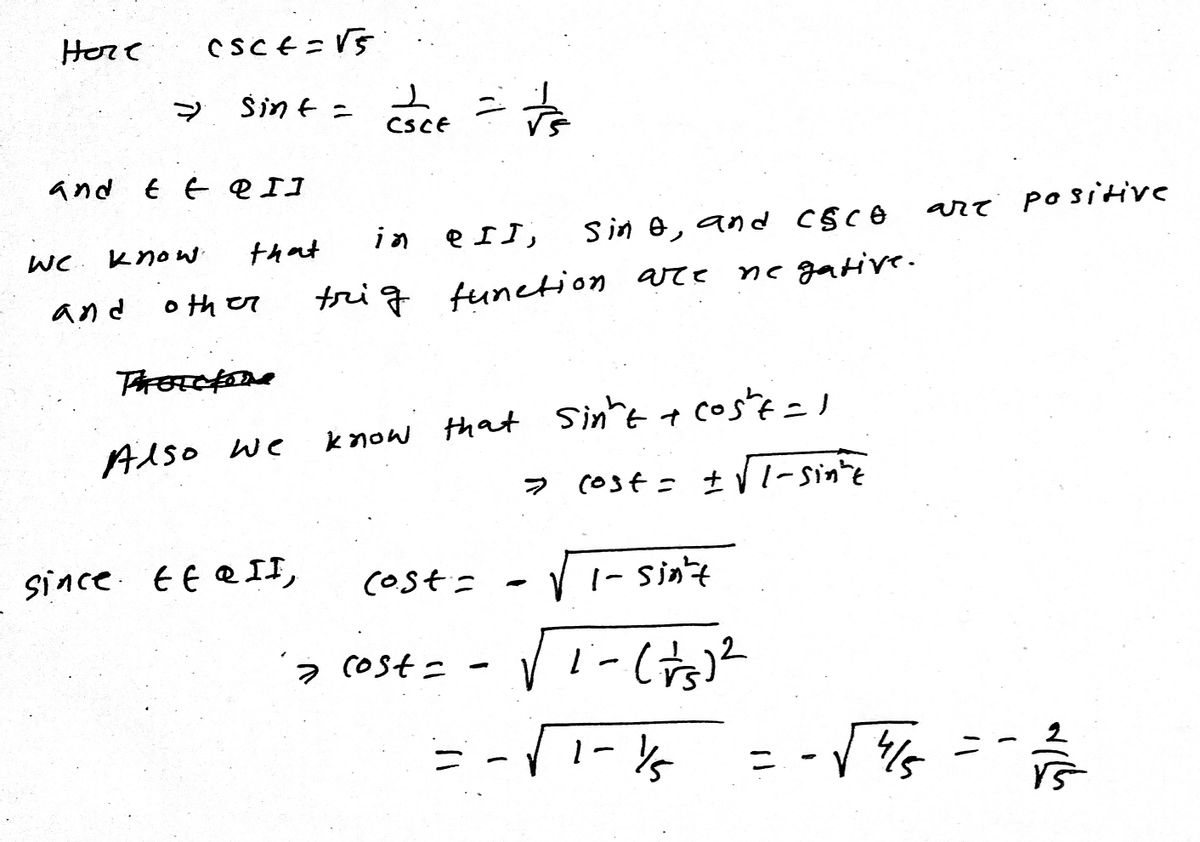 Here csc t = √5
⇒ sin t = 1/csc t = 1/√5
and t ∈ QII
we know that in QII, sin θ, and csc θ are positive
and other trig function are negative.
Therefore
Also we know that sin²t + cos²t = 1
⇒ cos t = ± √(1 - sin²t)
since t ∈ QII, cos t = - √(1 - sin²t)
⇒ cos t = - √(1 - (1/√5)²)
= - √(1 - 1/5) = - √(4/5) = - 2/√5